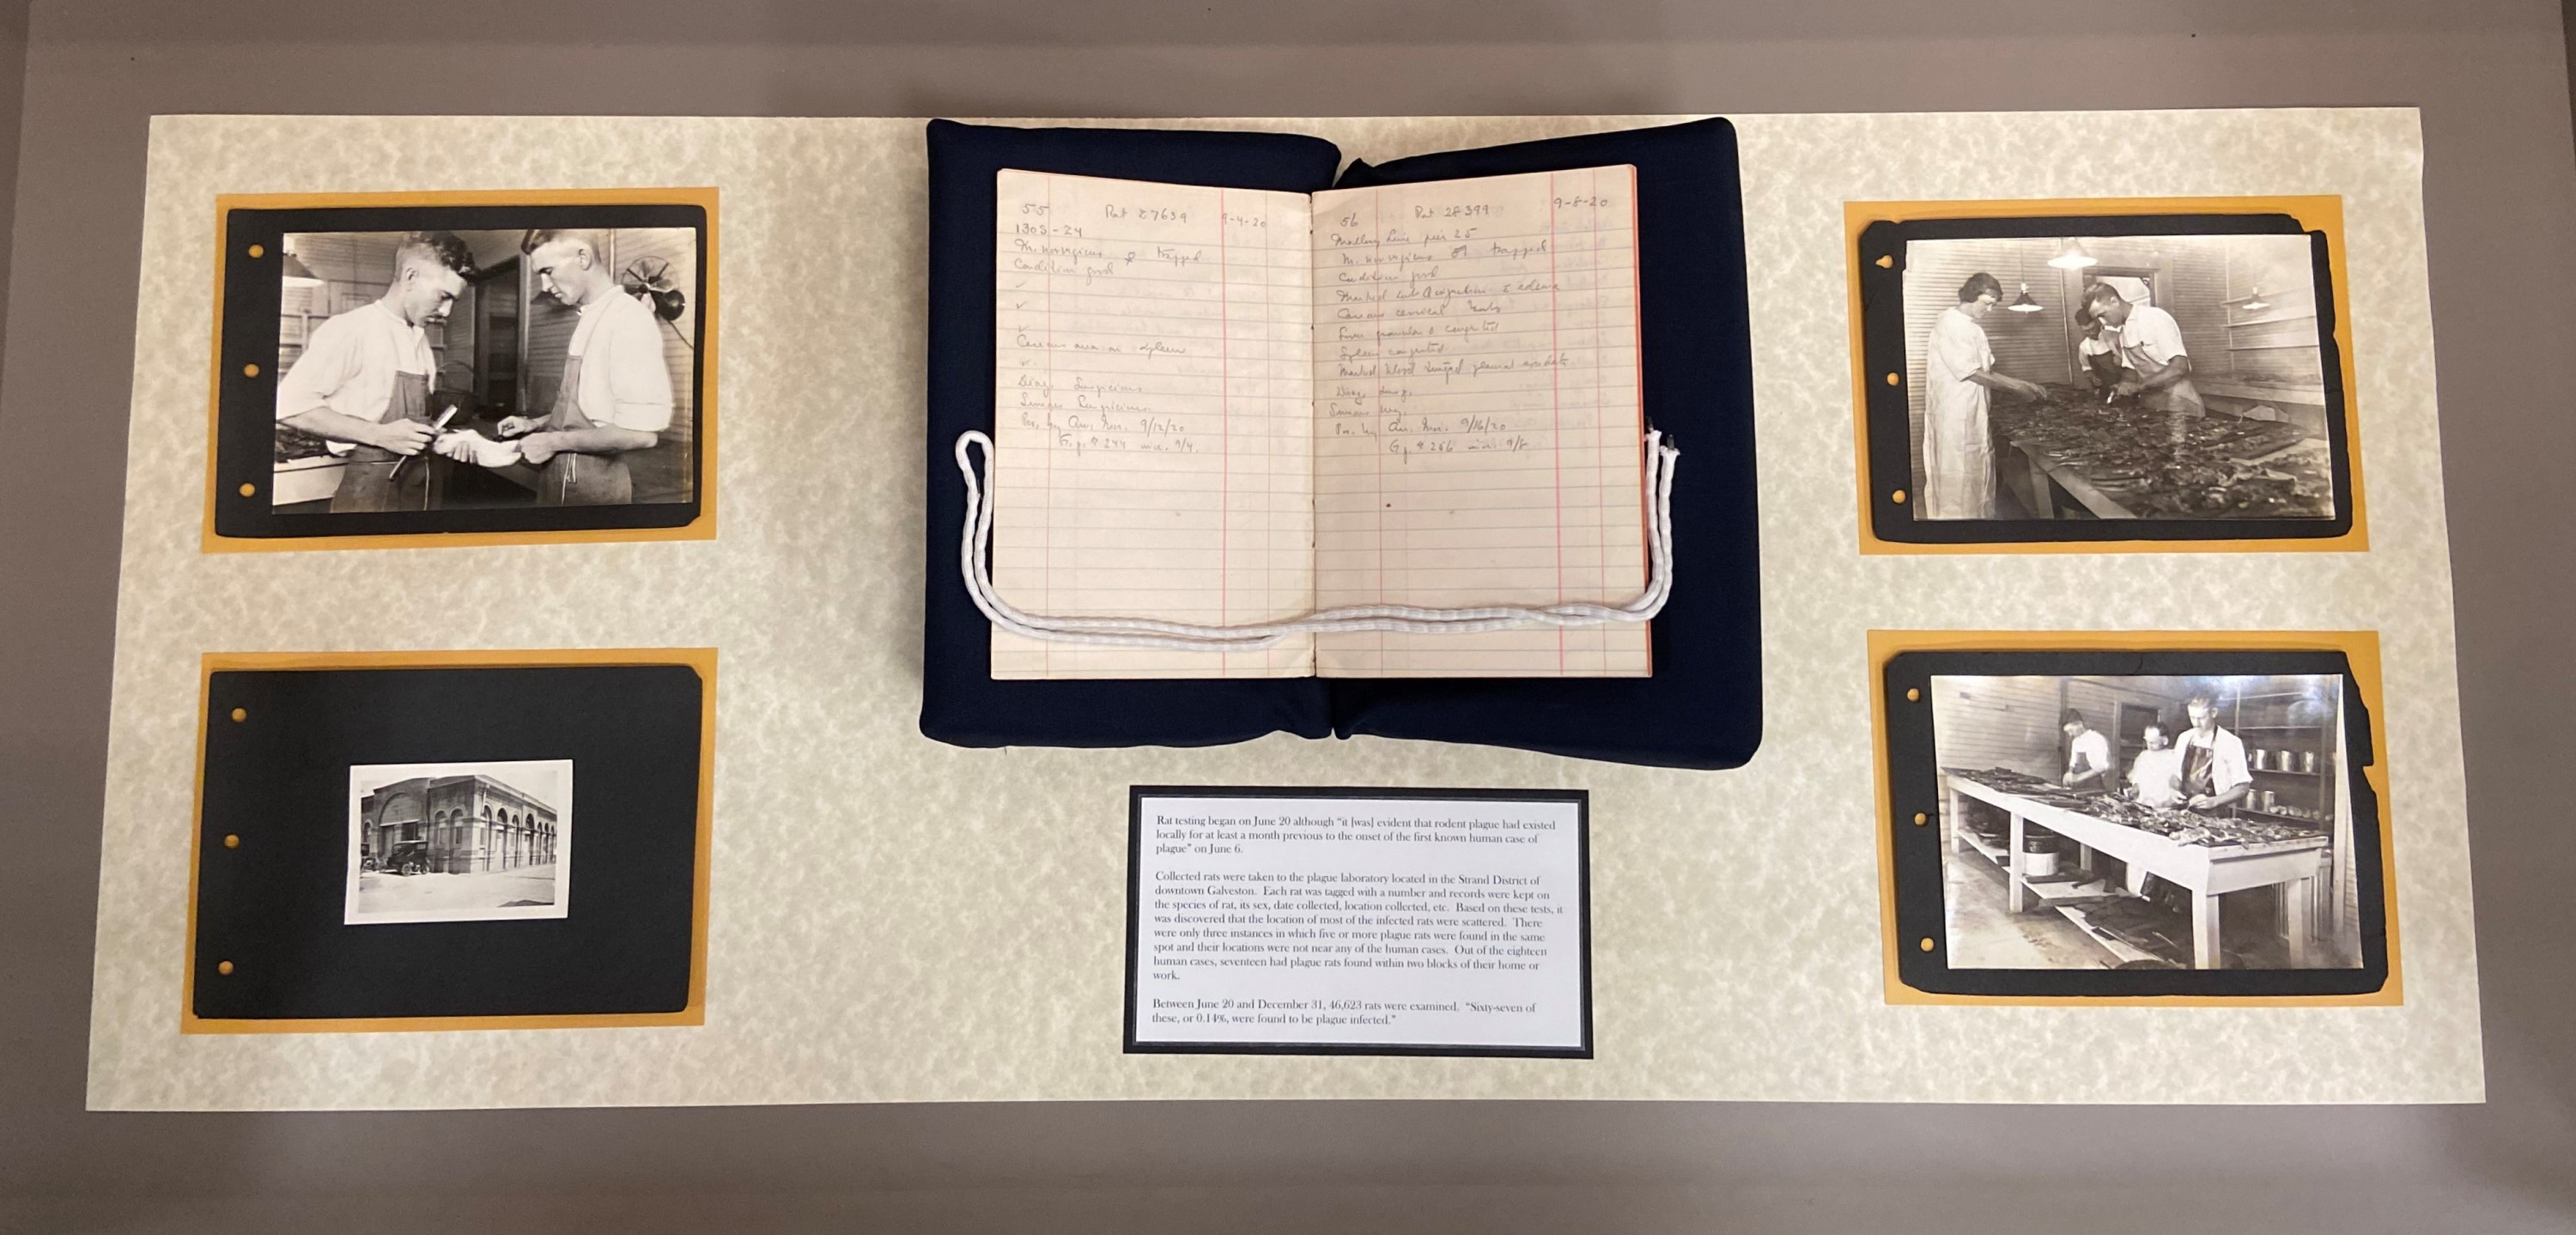 55 Rat 27639 9-4-20
1305-24
M. norvegicus ♀ trapped
Condition good
✓
✓
✓
Caseous area on spleen
✓
Diag. Suspicious
Smears Suspicious
9/12/20
G.p. # 244 9/4.
56 Rat 28399 9-8-20
Mallory Line pier 25
M. norvegicus trapped
Condition good
Marked edema
Caseous cervical
Liver granular & congested
Spleen congested
Marked blood tinged pleural exudate
Diag.
Smears neg.
9/16/20
G.p. # 266 9/8
Rat testing began on June 20 although "it [was] evident that rodent plague had existed
locally for at least a month previous to the onset of the first known human case of
plague" on June 6.
Collected rats were taken to the plague laboratory located in the Strand District of
downtown Galveston. Each rat was tagged with a number and records were kept on
the species of rat, its sex, date collected, location collected, etc. Based on these tests, it
was discovered that the location of most of the infected rats were scattered. There
were only three instances in which five or more plague rats were found in the same
spot and their locations were not near any of the human cases. Out of the eighteen
human cases, seventeen had plague rats found within two blocks of their home or
work.
Between June 20 and December 31, 46,623 rats were examined. "Sixty-seven of
these, or 0.14%, were found to be plague infected."